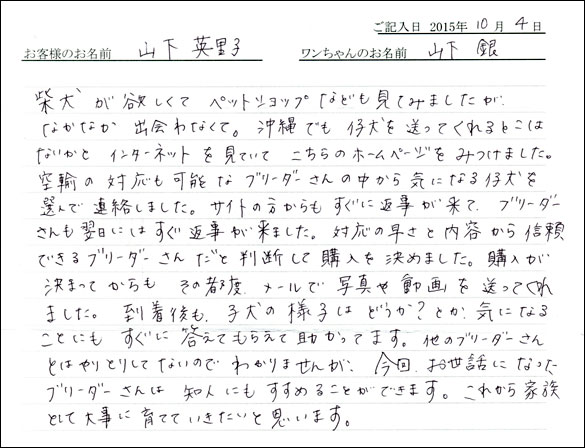 ご記入日 2015年 10月 4日
お客様のお名前 山下 英里子 ワンちゃんのお名前 山下 銀
柴犬が欲しくて ペットショップなども見てみましたが、
なかなか 出会わなくて。沖縄でも 仔犬を送ってくれるとこは
ないかと インターネットを見ていて こちらのホームページをみつけました。
空輸の 対応も可能なブリーダーさんの中から 気になる仔犬を
選んで 連絡しました。サイトの方からも すぐに返事が来て、ブリーダー
さんも翌日にはすぐ返事が来ました。対応の早さと内容から信頼
できるブリーダーさんだと判断して購入を決めました。購入が
決まってからも その都度、メールで 写真や動画を送ってくれ
ました。到着後も、子犬の様子はどうか?とか、気になる
ことにも すぐに答えてもらえて助かってます。他のブリーダーさん
とはやりとりしてないので わかりませんが、今回、お世話になった
ブリーダーさんは 知人にもすすめることができます。これから家族
として大事に育てていきたいと思います。